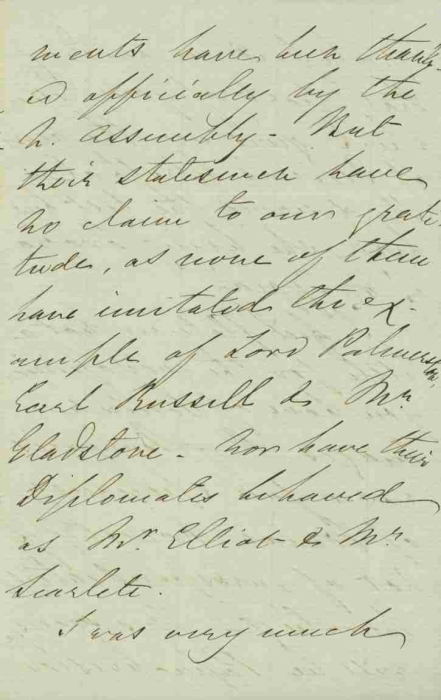 ments have been thank-
ed officially by the
N. Assembly - But
their statesmen have
no claim to our grati-
tude, as none of them
have imitated the ex-
ample of Lord Palmerston,
Earl Russell & Mr.
Gladstone - Nor have their
Diplomates behaved
as Mr. Elliot & Mr.
Scarlett.
I was very much